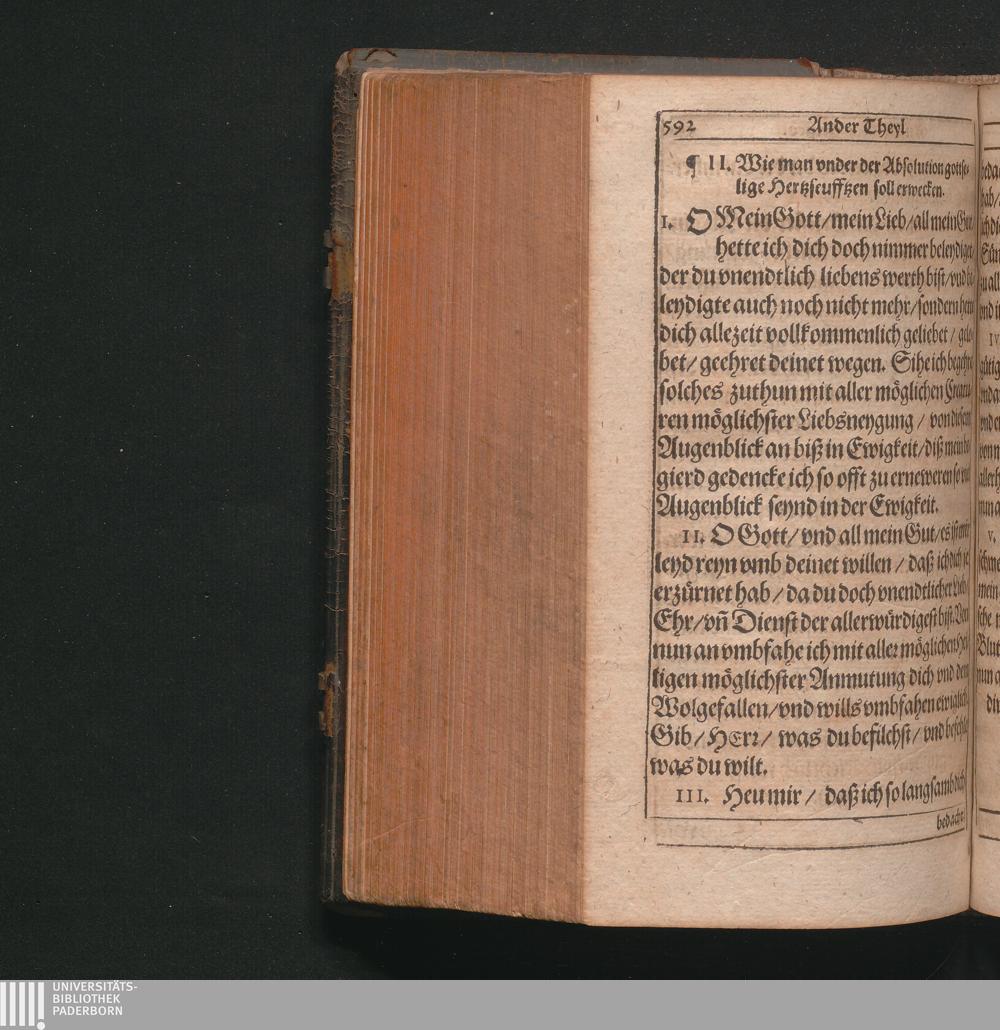 592 Ander Theyl
¶ II. Wie man vnder der Absolution gottse-
lige Hertzseufftzen soll erwecken.
I. O Mein Gott/mein Lieb/all mein
hette ich dich doch nimmer beleydiget
der du vnendtlich liebens werth bist/vnd be
leydigte auch noch nicht mehr/sondern hette
dich allezeit vollkommenlich geliebet / gelo
bet/ geehret deinet wegen. Sihe ich begehre
solches zuthun mit aller möglichen Creatu
ren möglichster Liebsneygung / von diesem
Augenblick an biß in Ewigkeit/diß mein be
gierd gedencke ich so offt zu erneweren so viel
Augenblick seynd in der Ewigkeit.
II. O Gott/ vnd all mein Gut/es ist mir
leyd reyn vmb deinet willen / daß ich dich je
erzürnet hab / da du doch vnendtlicher Lieb/
Ehr/vñ Dienst der allerwürdigest bist. Von
nun an vmbfahe ich mit aller möglichen Hey
ligen möglichster Anmutung dich vnd dein
Wolgefallen/vnd wills vmbfahen ewiglich.
Gib / HErr / was du befilchst / vnd befehle
was du wilt.
III. Heu mir / daß ich so langsamb dich
bedacht
UNIVERSITÄTS-
BIBLIOTHEK
PADERBORN